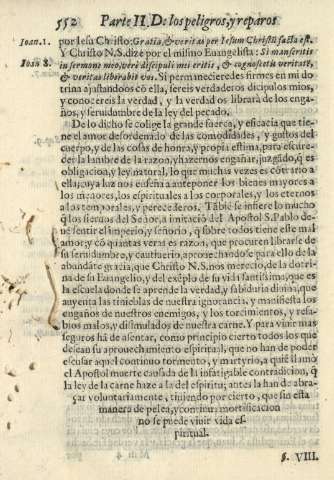 552 Parte II. De los peligros, y reparos
Ioan. 1. por Iesu Christo: Gratia, & veritas per Iesum Christū facta est.
Y Christo N.S. dize por el mismo Euangelista: Si manseritis
Ioan 8. in sermone meo, verè discipuli mei eritis, & cognoscetis veritatē,
& veritas liberabit vos. Si permanecieredes firmes en mi do
trina ajustandoos cō ella, sereis verdaderos dicipulos mios,
y conocereis la verdad, y la verdad os librarà de los enga-
ños, y seruidumbre de la ley del pecado.
De lo dicho se colige la grande fuerça, y eficacia que tie-
ne el amor desordenado de las comodidades, y gustos del
cuerpo, y de las cosas de honra, y propia estima, para escure-
cer la lumbre de la razon, y hazernos engañar, juzgādo, q̄ es
obligacion, y ley natural, lo que muchas vezes es cōtrario a
ella; cuya luz nos enseña a anteponer los bienes mayores a
los menores, los espirituales a los corporales, y los eternos
a los temporales, y perecederos. Tābiē se infiere lo mucho
q̄ los sieruos del Señor, a imitaciō del Apostol S. Pablo de-
uē sentir el imperio, y señorio, q̄ sobre todos tiene este mal
amor; y cō quantas veras es razon, que procuren librarse de
su seruidumbre, y cautiuerio, aprouechandose para ello de la
abundāte gracia, que Christo N.S. nos merecio, de la dotri-
na de su Euangelio, y del exēplo de su vida santissima, que es
la escuela donde se aprende la verdad, y sabiduria diuina, que
auyenta las tinieblas de nuestra ignorancia, y manifiesta los
engaños de nuestros enemigos, y los torcimientos, y resa-
bios malos, y dissimulados de nuestra carne. Y para viuir mas
seguros hā de asentar, como principio cierto todos los que
dessean su aprouechamiento espiritual, que no han de poder
escusar aquel continuo tormēto, y martyrio, a quiē llamò
el Apostol muerte causada de la infatigable contradicion, q̄
la ley de la carne haze a la del espiritu; antes la han de abra-
çar voluntariamente, viuiendo por cierto, que sin esta
manera de pelea, y continua mortificacion
no se puede viuir vida es-
piritual.
§. VIII.